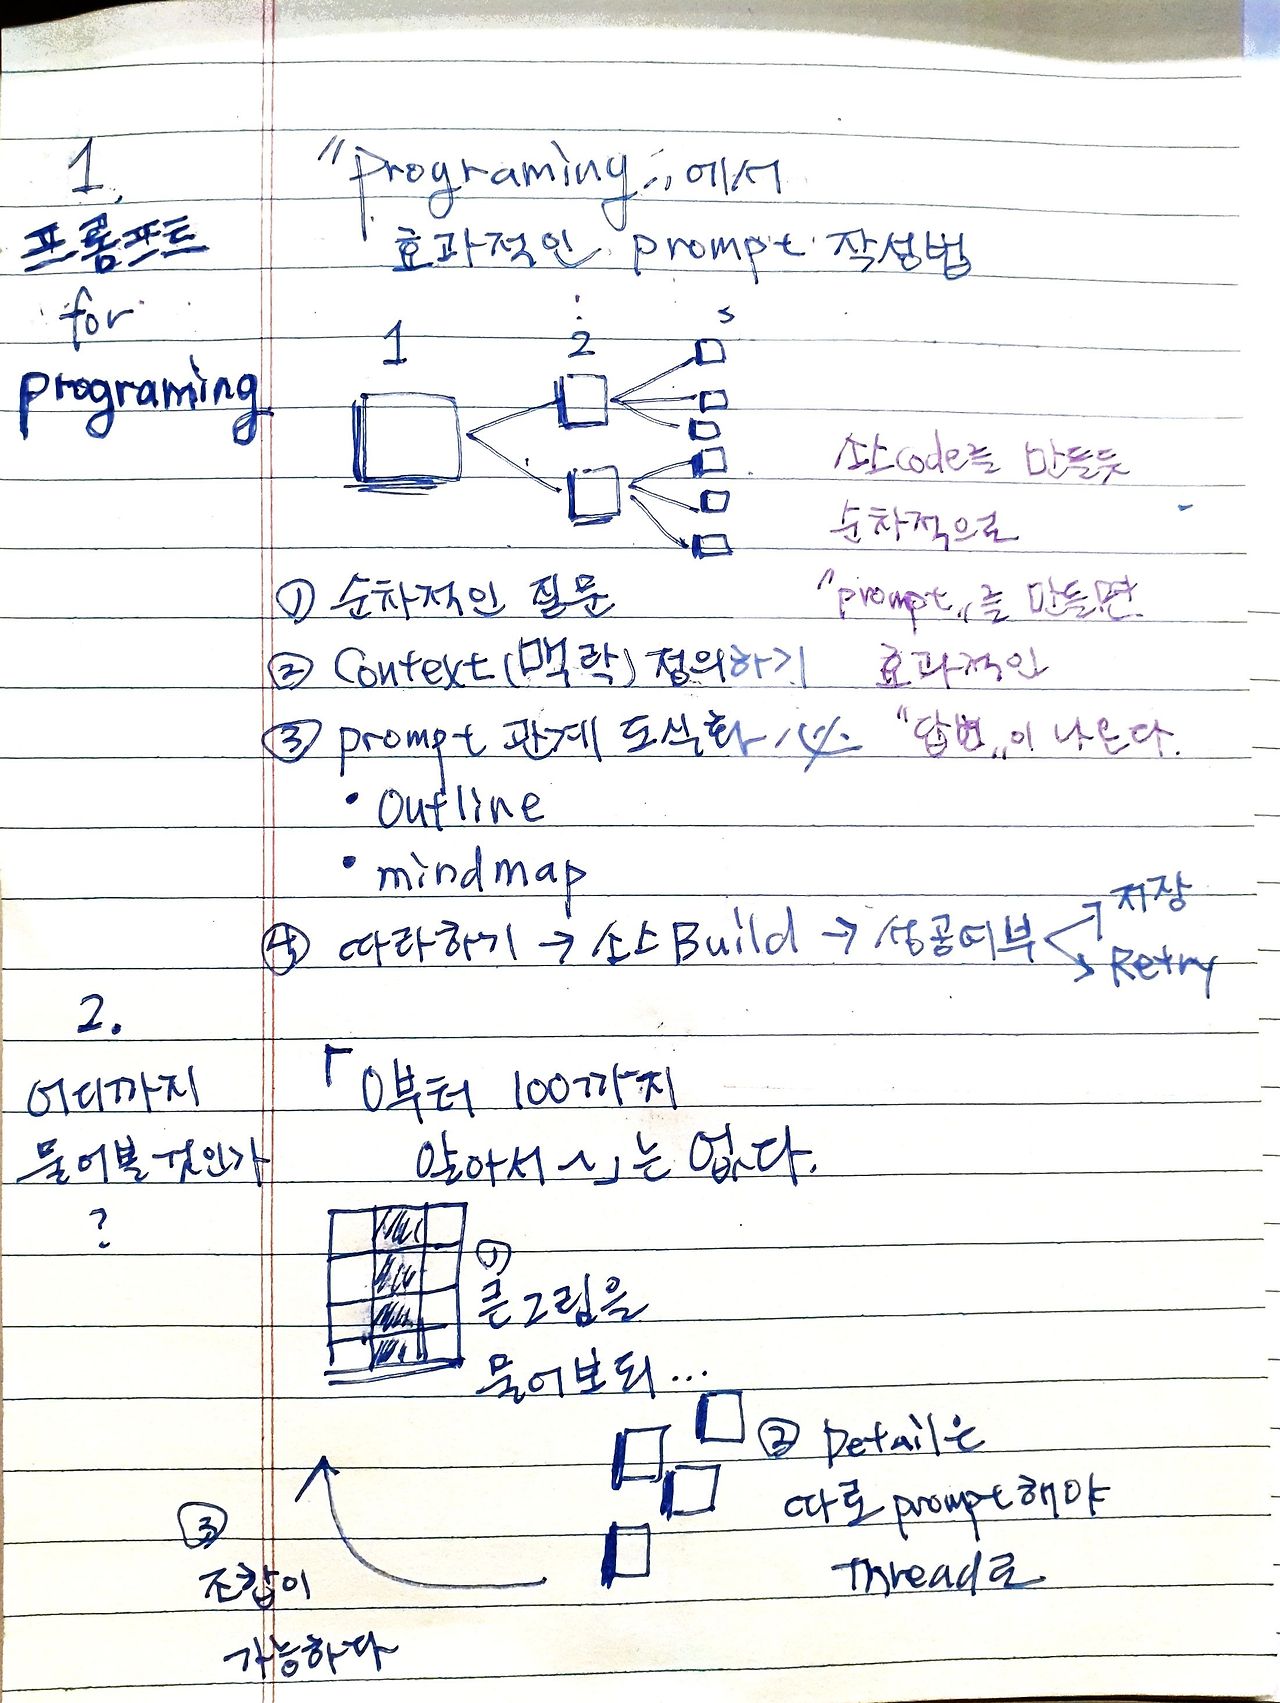 1.
프롬프트
for
programing
"programing"에서
효과적인 prompt 작성법
1
2
3
소스code를 만들듯
순차적으로
"prompt"를 만들면
효과적인
"답변"이 나온다.
① 순차적인 질문
② Context(맥락) 정의하기
③ prompt 관계 도식화
• Outline
• mindmap
④ 따라하기 → 소스Build → 성공여부
저장
Retry
2.
어디까지
물어볼 것인가
?
「0부터 100까지
알아서~」는 없다.
①
큰그림을
물어보되...
② Detail은
따로 prompt해야
Thread로
③
조합이
가능하다